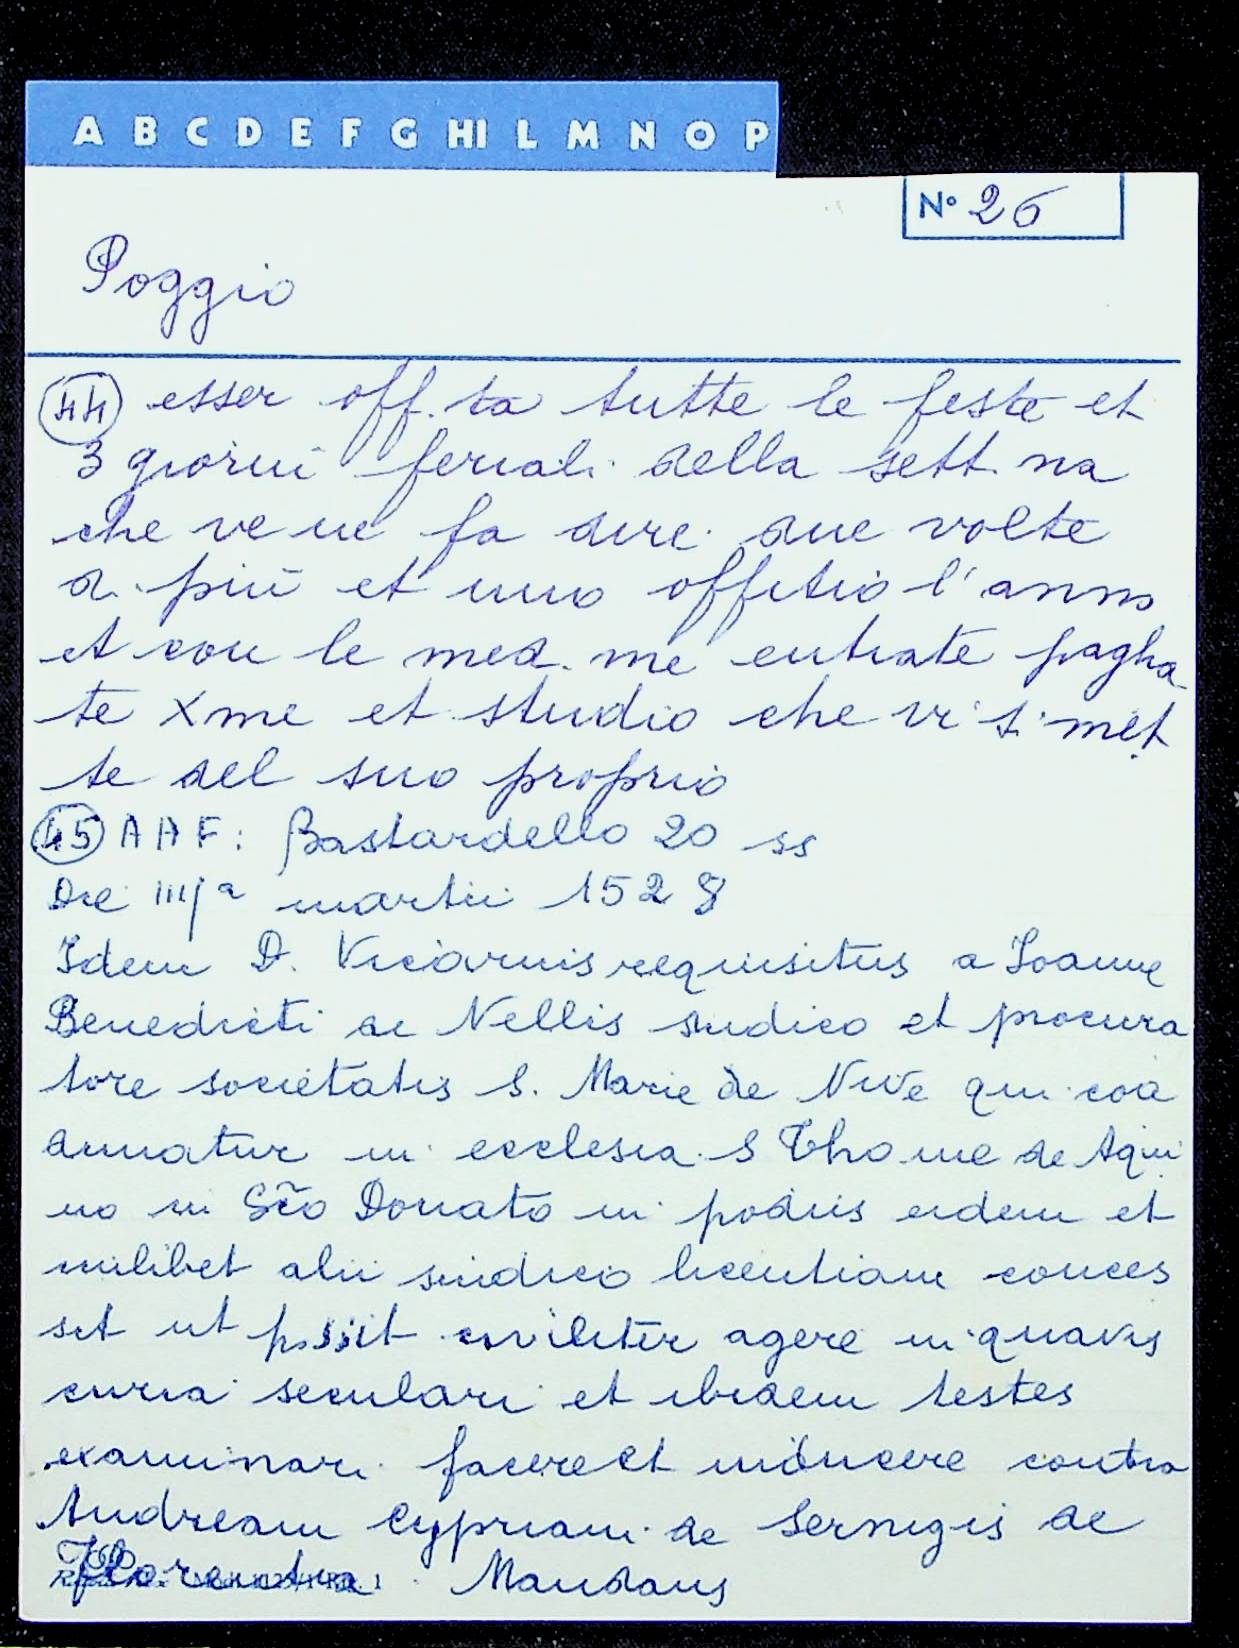 A B C D E F G HI L M N O P
N° 26
Poggio
44 esser off.ta tutte le feste et
3 giorni feriali della sett.na
che ve ne fa dire due volte
di più et uno offitio l'anno
et con le med.me entrate pagha
te Xme et studio che vi si met
te del suo proprio
45 AAF: Bastardello 20 ss
Die IIIJª martii 1528
Idem D. Vicarius requisitus a Joanne
Benedicti de Nellis sindico et procura
tore societatis S. Marie de Nive qui coa
dunatur in ecclesia S Thome de Aqui
no in Sc̃o Donato in podiis eidem et
cuilibet alii sindico licentiam conces
sit ut possit civiliter agere in quavis
curia seculari et ibidem testes
examinari facere et inducere contra
Andream Cypriani de Sernigis de
Florentia Mandans